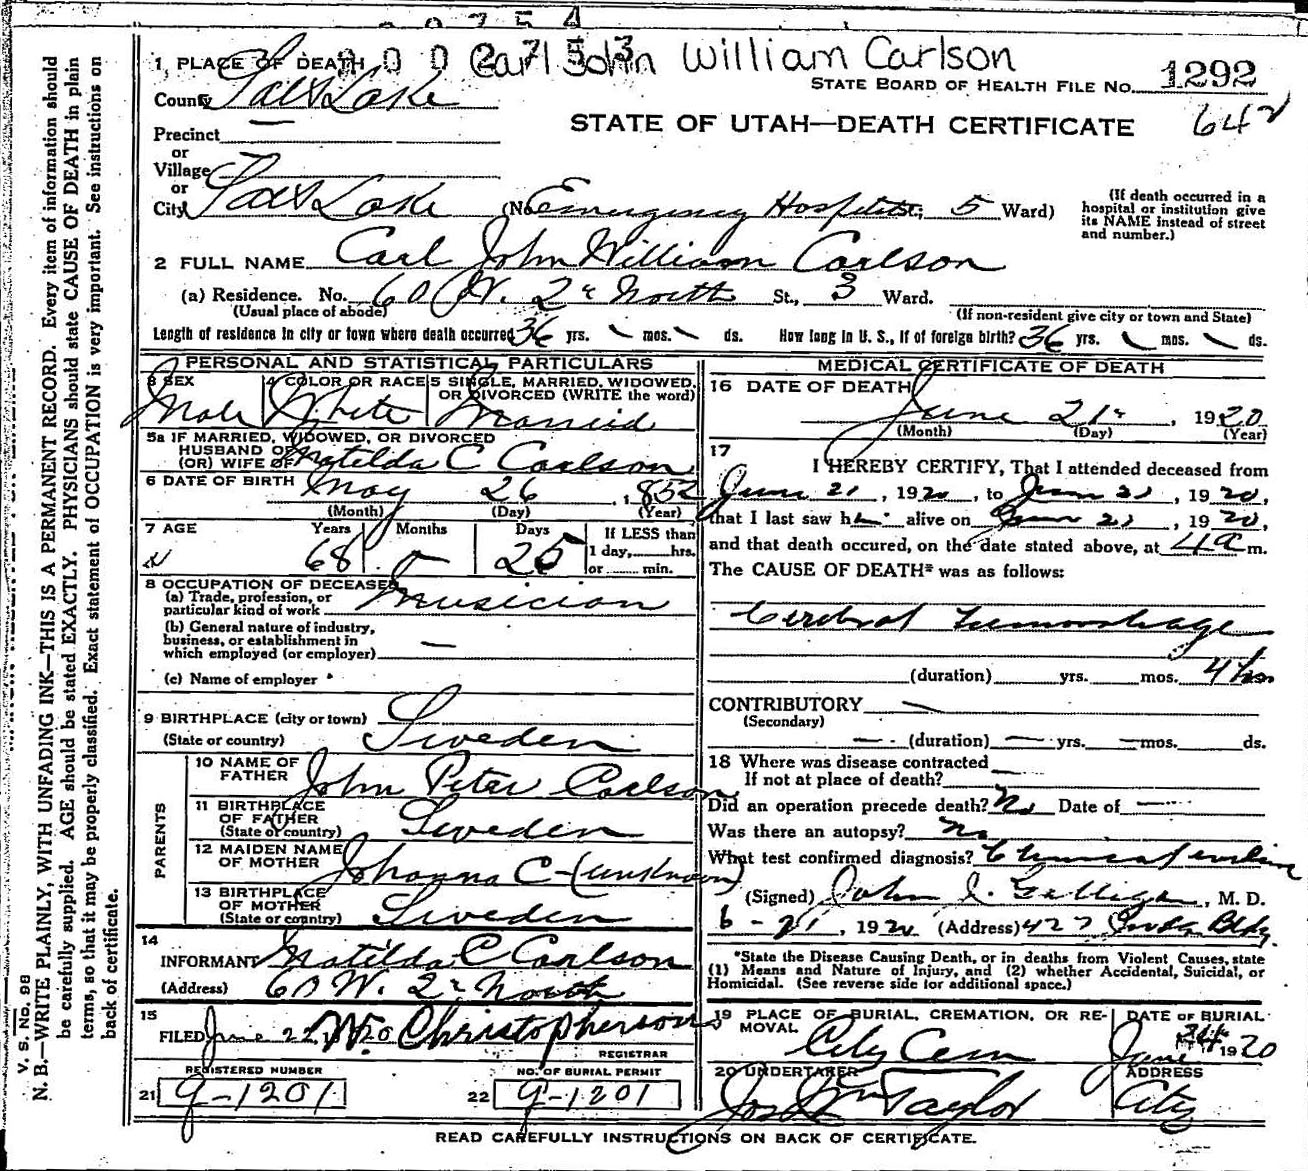 Carl John William Carlson
1 PLACE OF DEATH
STATE BOARD OF HEALTH FILE No. 1292
County Salt Lake
STATE OF UTAH—DEATH CERTIFICATE 642
Precinct
or
Village
or
City Salt Lake (No. Emergency Hospital St.; 5 Ward)
(If death occurred in a hospital or institution give its NAME instead of street and number.)
2 FULL NAME Carl John William Carlson
(a) Residence. No. 60 W. 2d North St., 3 Ward.
(Usual place of abode) (If non-resident give city or town and State)
Length of residence in city or town where death occurred 36 yrs. mos. ds. How long in U. S., if of foreign birth? 36 yrs. mos. ds.
PERSONAL AND STATISTICAL PARTICULARS
3 SEX Male
4 COLOR OR RACE White
5 SINGLE, MARRIED, WIDOWED, OR DIVORCED (WRITE the word) Married
5a IF MARRIED, WIDOWED, OR DIVORCED
HUSBAND OF
(OR) WIFE OF Matilda C Carlson
6 DATE OF BIRTH May 26, 1852
(Month) (Day) (Year)
7 AGE Years 68 Months Days 25
If LESS than
1 day, hrs.
or min.
8 OCCUPATION OF DECEASED
(a) Trade, profession, or
particular kind of work Musician
(b) General nature of industry,
business, or establishment in
which employed (or employer) —
(c) Name of employer
9 BIRTHPLACE (city or town)
(State or country) Sweden
PARENTS
10 NAME OF
FATHER John Peter Carlson
11 BIRTHPLACE
OF FATHER
(State or country) Sweden
12 MAIDEN NAME
OF MOTHER Johanna C (unknown)
13 BIRTHPLACE
OF MOTHER
(State or country) Sweden
14
INFORMANT Matilda C Carlson
(Address) 60 W. 2d North
15
FILED June 22 1920 W. Christopherson
REGISTRAR
REGISTERED NUMBER
21 9-1201
NO. OF BURIAL PERMIT
22 9-1201
MEDICAL CERTIFICATE OF DEATH
16 DATE OF DEATH
June 21st, 1920
(Month) (Day) (Year)
17
I HEREBY CERTIFY, That I attended deceased from
June 21, 1920, to June 21, 1920,
that I last saw him alive on June 21, 1920,
and that death occured, on the date stated above, at 4 a m.
The CAUSE OF DEATH* was as follows:
Cerebral Hemorrhage
(duration) yrs. mos. 4 hrs
CONTRIBUTORY —
(Secondary)
— (duration) — yrs. — mos. ds.
18 Where was disease contracted
If not at place of death? —
Did an operation precede death? No Date of —
Was there an autopsy? No
What test confirmed diagnosis? Clinical
(Signed) John J. Galligan, M. D.
6-21, 1920 (Address) 427 Bldg.
*State the Disease Causing Death, or in deaths from Violent Causes, state
(1) Means and Nature of Injury, and (2) whether Accidental, Suicidal, or
Homicidal. (See reverse side for additional space.)
19 PLACE OF BURIAL, CREMATION, OR RE-
MOVAL City Cem
DATE OF BURIAL
June 24th 1920
20 UNDERTAKER Jos Wm Taylor
ADDRESS City
READ CAREFULLY INSTRUCTIONS ON BACK OF CERTIFICATE.
V. S. No. 98
N. B.—WRITE PLAINLY, WITH UNFADING INK—THIS IS A PERMANENT RECORD. Every item of information should
be carefully supplied. AGE should be stated EXACTLY. PHYSICIANS should state CAUSE OF DEATH in plain
terms, so that it may be properly classified. Exact statement of OCCUPATION is very important. See instructions on
back of certificate.